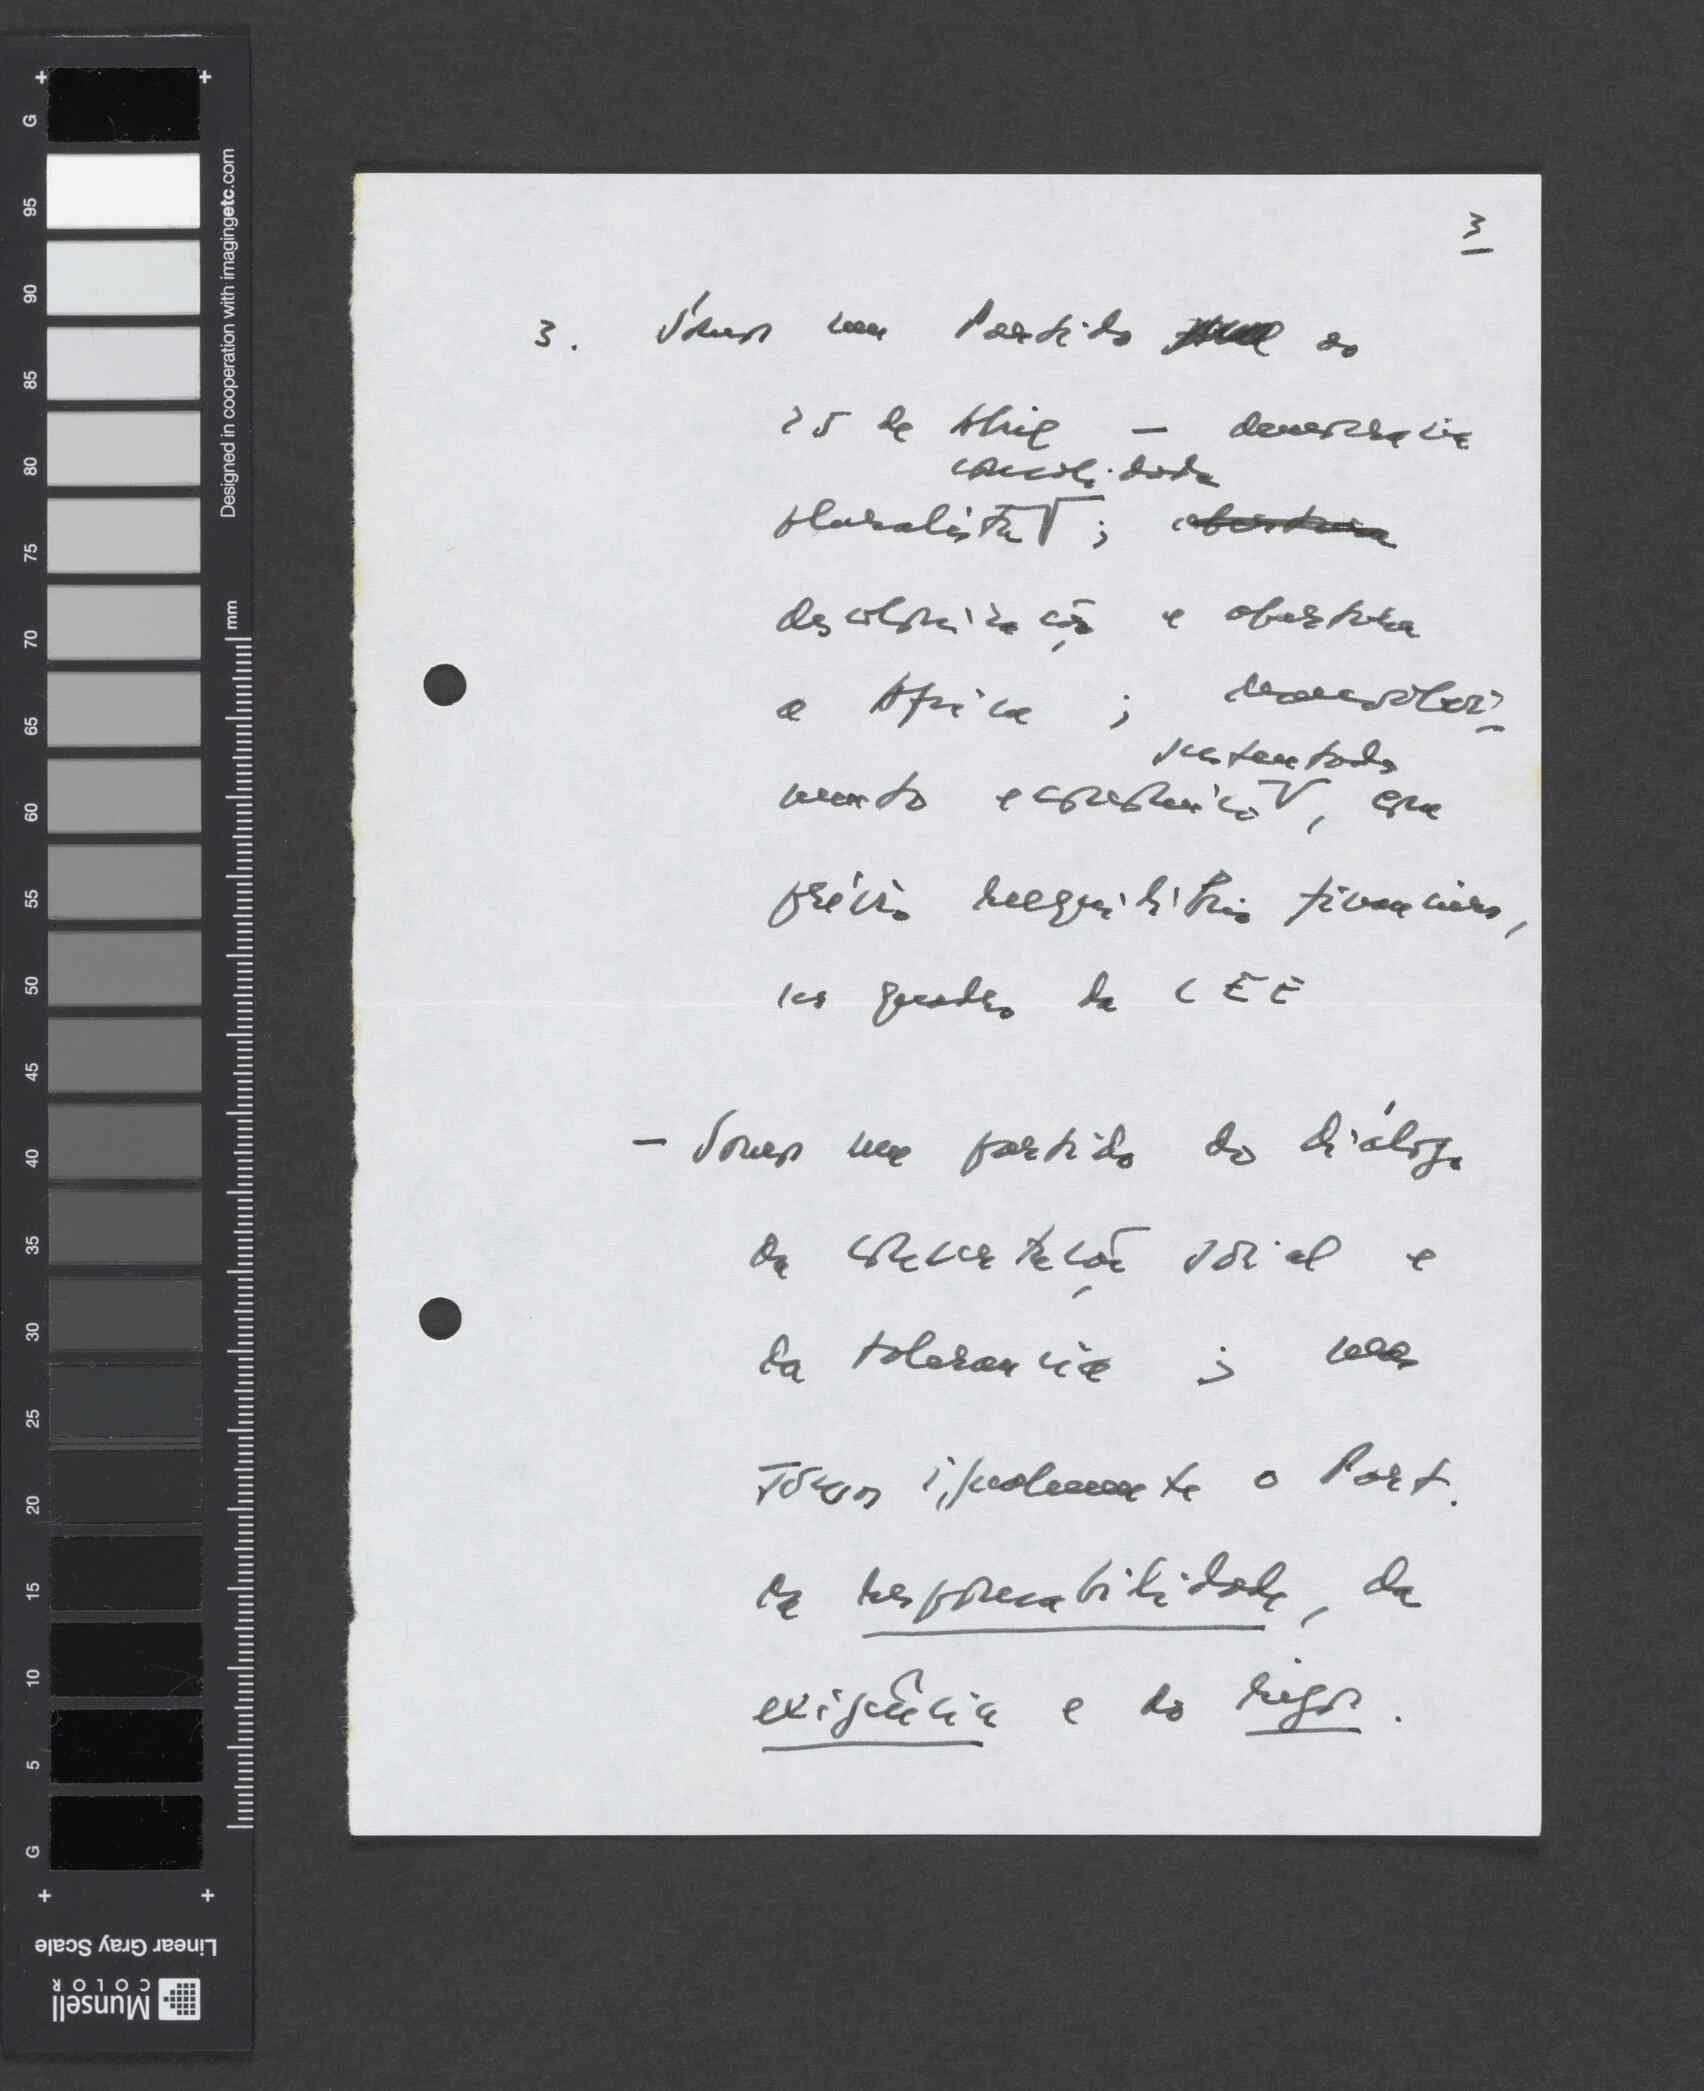 3
3. Somos um Partido do
25 de Abril — democracia
consolidada
pluralista ; abertura
descolonização e abertura
a Africa ; desenvolvi-
sustentado
mento economico, com
prévio reequilibrio financeiro,
no quadro da CEE
— Somos um partido do diálogo
da concertação social e
da tolerancia ; mas
somos igualmente o Part.
da responsabilidade, da
exigência e do rigor.
G
95
90
85
80
75
70
65
60
55
50
45
40
35
30
25
20
15
10
5
G
Designed in cooperation with imagingetc.com
mm
Linear Gray Scale
Munsell
COLOR